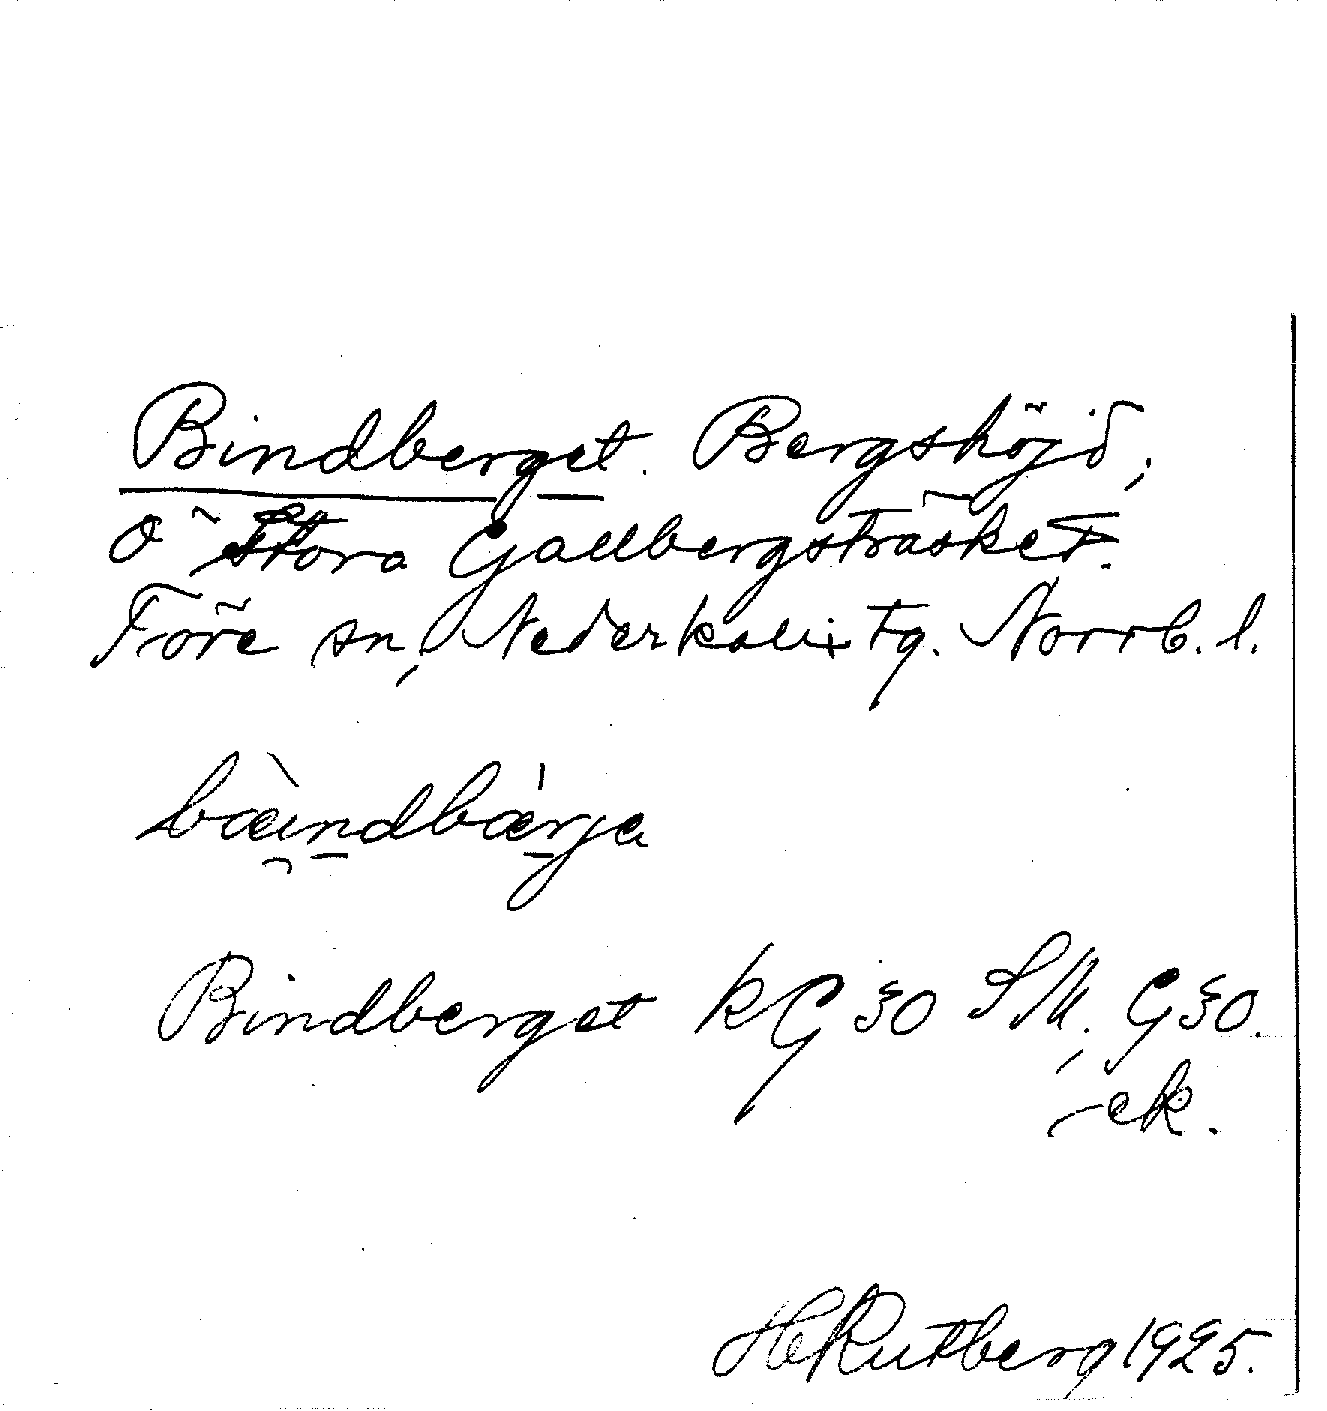 Bindberget. Bergshöjd,
ö Stora Gallbergsträsket.
Töre sn, Nederkalix tg. Norrb. l.
bæ̀indbæ'rja
Bindberget kG 30 SM, G30.
ek.
H Rutberg 1925.